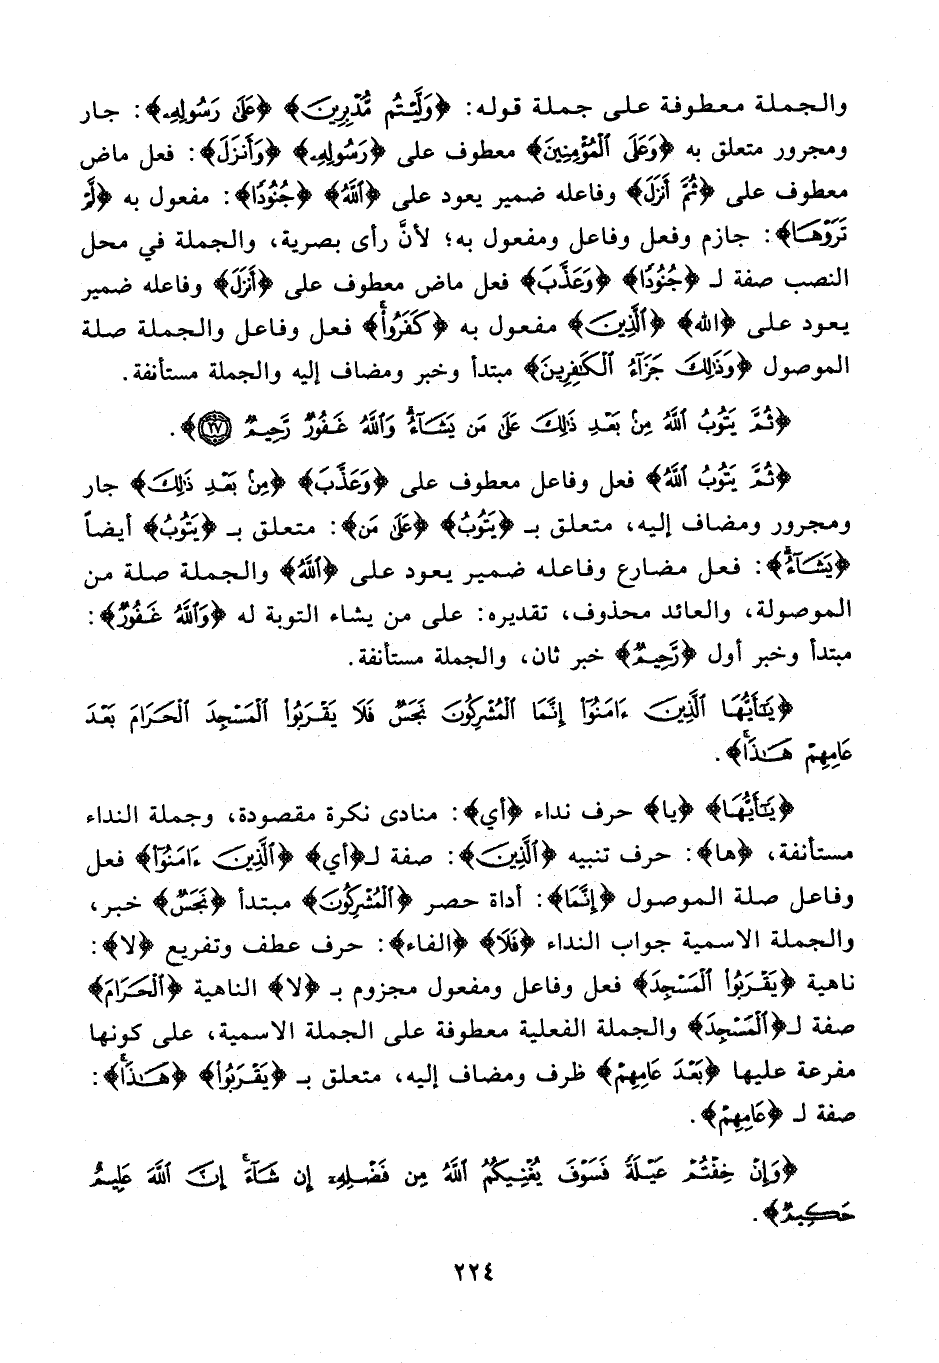 والجملة معطوفة على جملة قوله: ﴿وَلَّيْتُم مُّدْبِرِينَ﴾ ﴿عَلَىٰ رَسُولِهِۦ﴾: جار
ومجرور متعلق به ﴿وَعَلَى ٱلْمُؤْمِنِينَ﴾ معطوف على ﴿رَسُولِهِۦ﴾ ﴿وَأَنزَلَ﴾: فعل ماض
معطوف على ﴿ثُمَّ أَنزَلَ﴾ وفاعله ضمير يعود على ﴿ٱللَّهُ﴾ ﴿جُنُودًا﴾: مفعول به ﴿لَّمْ
تَرَوْهَا﴾: جازم وفعل وفاعل ومفعول به؛ لأنَّ رأى بصرية، والجملة في محل
النصب صفة لـ ﴿جُنُودًا﴾ ﴿وَعَذَّبَ﴾ فعل ماض معطوف على ﴿أَنزَلَ﴾ وفاعله ضمير
يعود على ﴿الله﴾ ﴿ٱلَّذِينَ﴾ مفعول به ﴿كَفَرُوا۟ۚ﴾ فعل وفاعل والجملة صلة
الموصول ﴿وَذَٰلِكَ جَزَآءُ ٱلْكَـٰفِرِينَ﴾ مبتدأ وخبر ومضاف إليه والجملة مستأنفة.
﴿ثُمَّ يَتُوبُ ٱللَّهُ مِنۢ بَعْدِ ذَٰلِكَ عَلَىٰ مَن يَشَآءُۗ وَٱللَّهُ غَفُورٌ رَّحِيمٌ ٢٧﴾.
﴿ثُمَّ يَتُوبُ ٱللَّهُ﴾ فعل وفاعل معطوف على ﴿وَعَذَّبَ﴾ ﴿مِنۢ بَعْدِ ذَٰلِكَ﴾ جار
ومجرور ومضاف إليه، متعلق بـ ﴿يَتُوبُ﴾ ﴿عَلَىٰ مَن﴾: متعلق بـ ﴿يَتُوبُ﴾ أيضاً
﴿يَشَآءُۗ﴾: فعل مضارع وفاعله ضمير يعود على ﴿ٱللَّهُ﴾ والجملة صلة من
الموصولة، والعائد محذوف، تقديره: على من يشاء التوبة له ﴿وَٱللَّهُ غَفُورٌ﴾:
مبتدأ وخبر أول ﴿رَّحِيمٌ﴾ خبر ثان، والجملة مستأنفة.
﴿يَـٰٓأَيُّهَا ٱلَّذِينَ ءَامَنُوٓا۟ إِنَّمَا ٱلْمُشْرِكُونَ نَجَسٌ فَلَا يَقْرَبُوا۟ ٱلْمَسْجِدَ ٱلْحَرَامَ بَعْدَ
عَامِهِمْ هَـٰذَاۚ﴾.
﴿يَـٰٓأَيُّهَا﴾ ﴿يا﴾ حرف نداء ﴿أي﴾: منادى نكرة مقصودة، وجملة النداء
مستأنفة، ﴿ها﴾: حرف تنبيه ﴿ٱلَّذِينَ﴾: صفة لـ﴿أي﴾ ﴿ٱلَّذِينَ ءَامَنُوٓا۟﴾ فعل
وفاعل صلة الموصول ﴿إِنَّمَا﴾: أداة حصر ﴿ٱلْمُشْرِكُونَ﴾ مبتدأ ﴿نَجَسٌ﴾ خبر،
والجملة الاسمية جواب النداء ﴿فَلَا﴾ ﴿الفاء﴾: حرف عطف وتفريع ﴿لا﴾:
ناهية ﴿يَقْرَبُوا۟ ٱلْمَسْجِدَ﴾ فعل وفاعل ومفعول مجزوم بـ ﴿لا﴾ الناهية ﴿ٱلْحَرَامَ﴾
صفة لـ﴿ٱلْمَسْجِدَ﴾ والجملة الفعلية معطوفة على الجملة الاسمية، على كونها
مفرعة عليها ﴿بَعْدَ عَامِهِمْ﴾ ظرف ومضاف إليه، متعلق بـ ﴿يَقْرَبُوا۟﴾ ﴿هَـٰذَاۚ﴾:
صفة لـ ﴿عَامِهِمْ﴾.
﴿وَإِنْ خِفْتُمْ عَيْلَةً فَسَوْفَ يُغْنِيكُمُ ٱللَّهُ مِن فَضْلِهِۦٓ إِن شَآءَۚ إِنَّ ٱللَّهَ عَلِيمٌ
حَكِيمٌ﴾.
٢٢٤